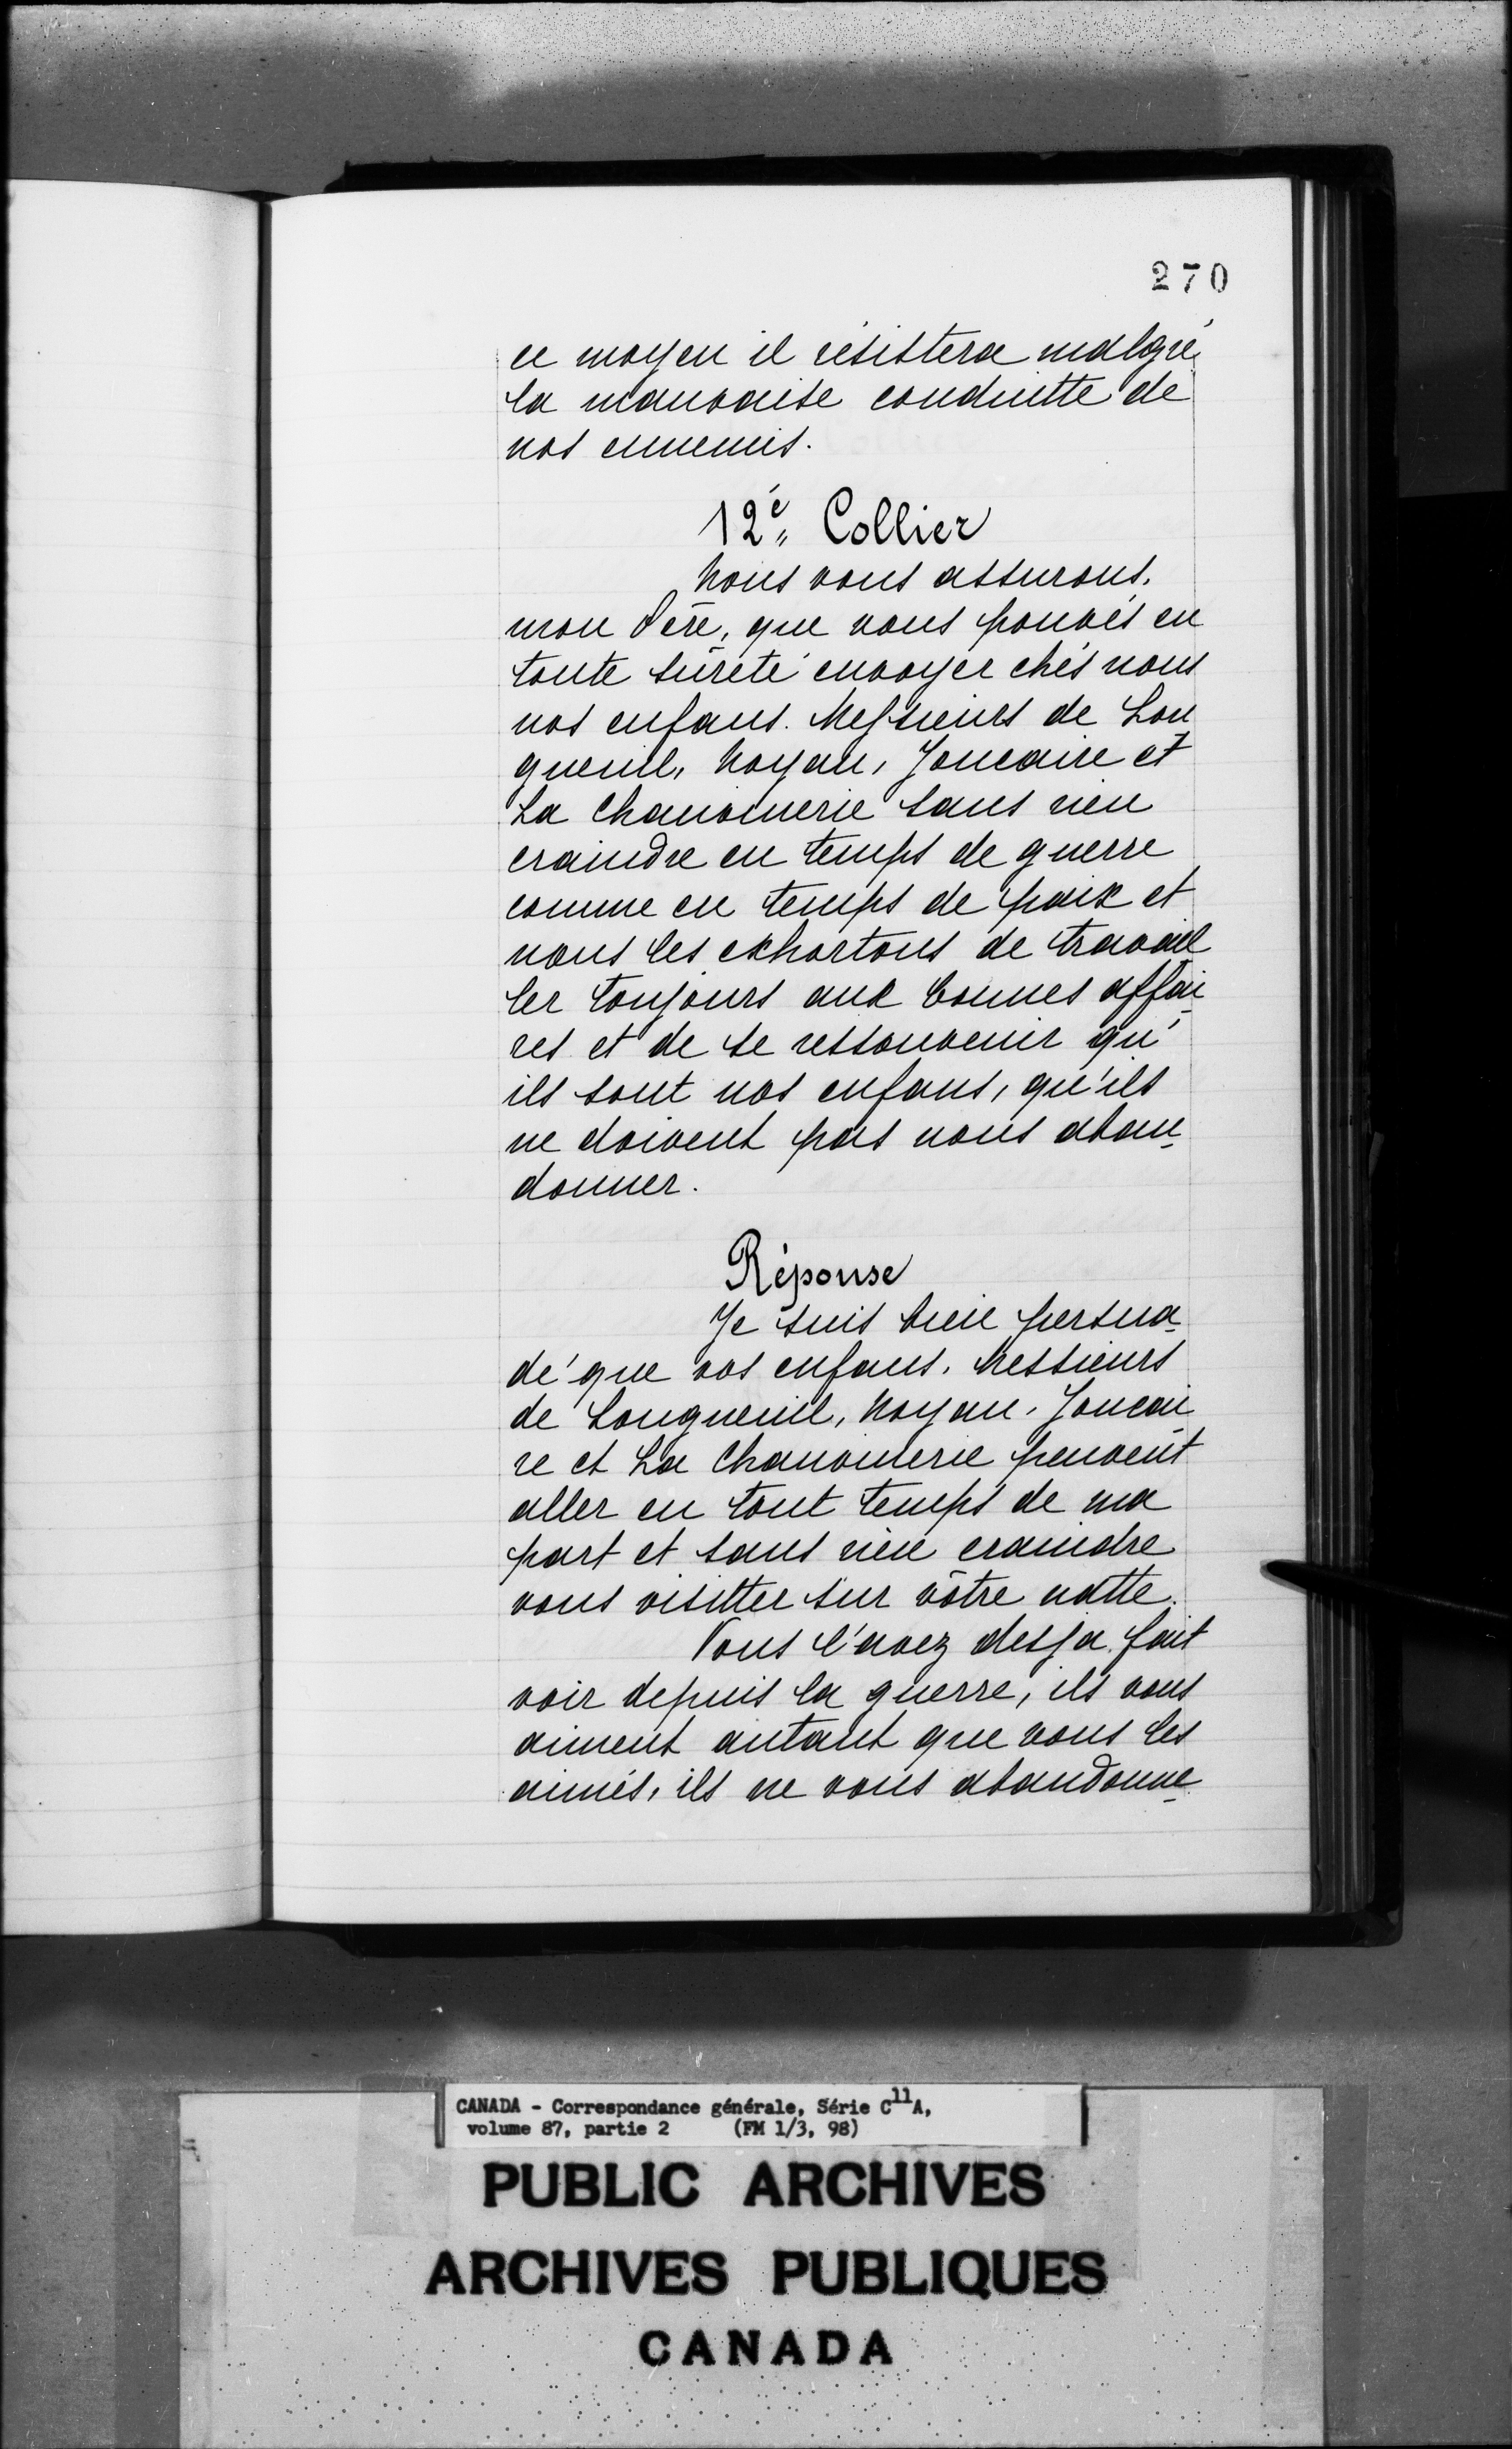 270
ce moyen il résistera malgré
la mauvaise conduitte de
nos ennemis.
12e. Collier
Nous vous assurons,
mon Père, que vous pouvés en
toute sûreté envoyer chés nous
nos enfans. Messieurs de Lon
gueuil, Noyan, Joncaire et
La Chauvinerie sans rien
craindre en temps de guerre
comme en temps de paix et
nous les exhortons de travail
ler toujours aux bonnes affai-
res et de se ressouvenir qu'
ils sont nos enfans, qu'ils
ne doivent pas nous aban-
donner.
Réponse
Je suis bien persua-
dé que vos enfans, Messieurs
de Longueuil, Noyan, Joncai
re et La Chauvinerie peuvent
aller en tout temps de ma
part et sans rien craindre
vous visitter sur vôtre natte.
Vous l'avez desja fait
voir depuis la guerre, ils vous
aiment autant que vous les
aimés, ils ne vous abandonne-
CANADA - Correspondance générale, Série C11A,
volume 87, partie 2 (FM 1/3, 98)
PUBLIC ARCHIVES
ARCHIVES PUBLIQUES
CANADA